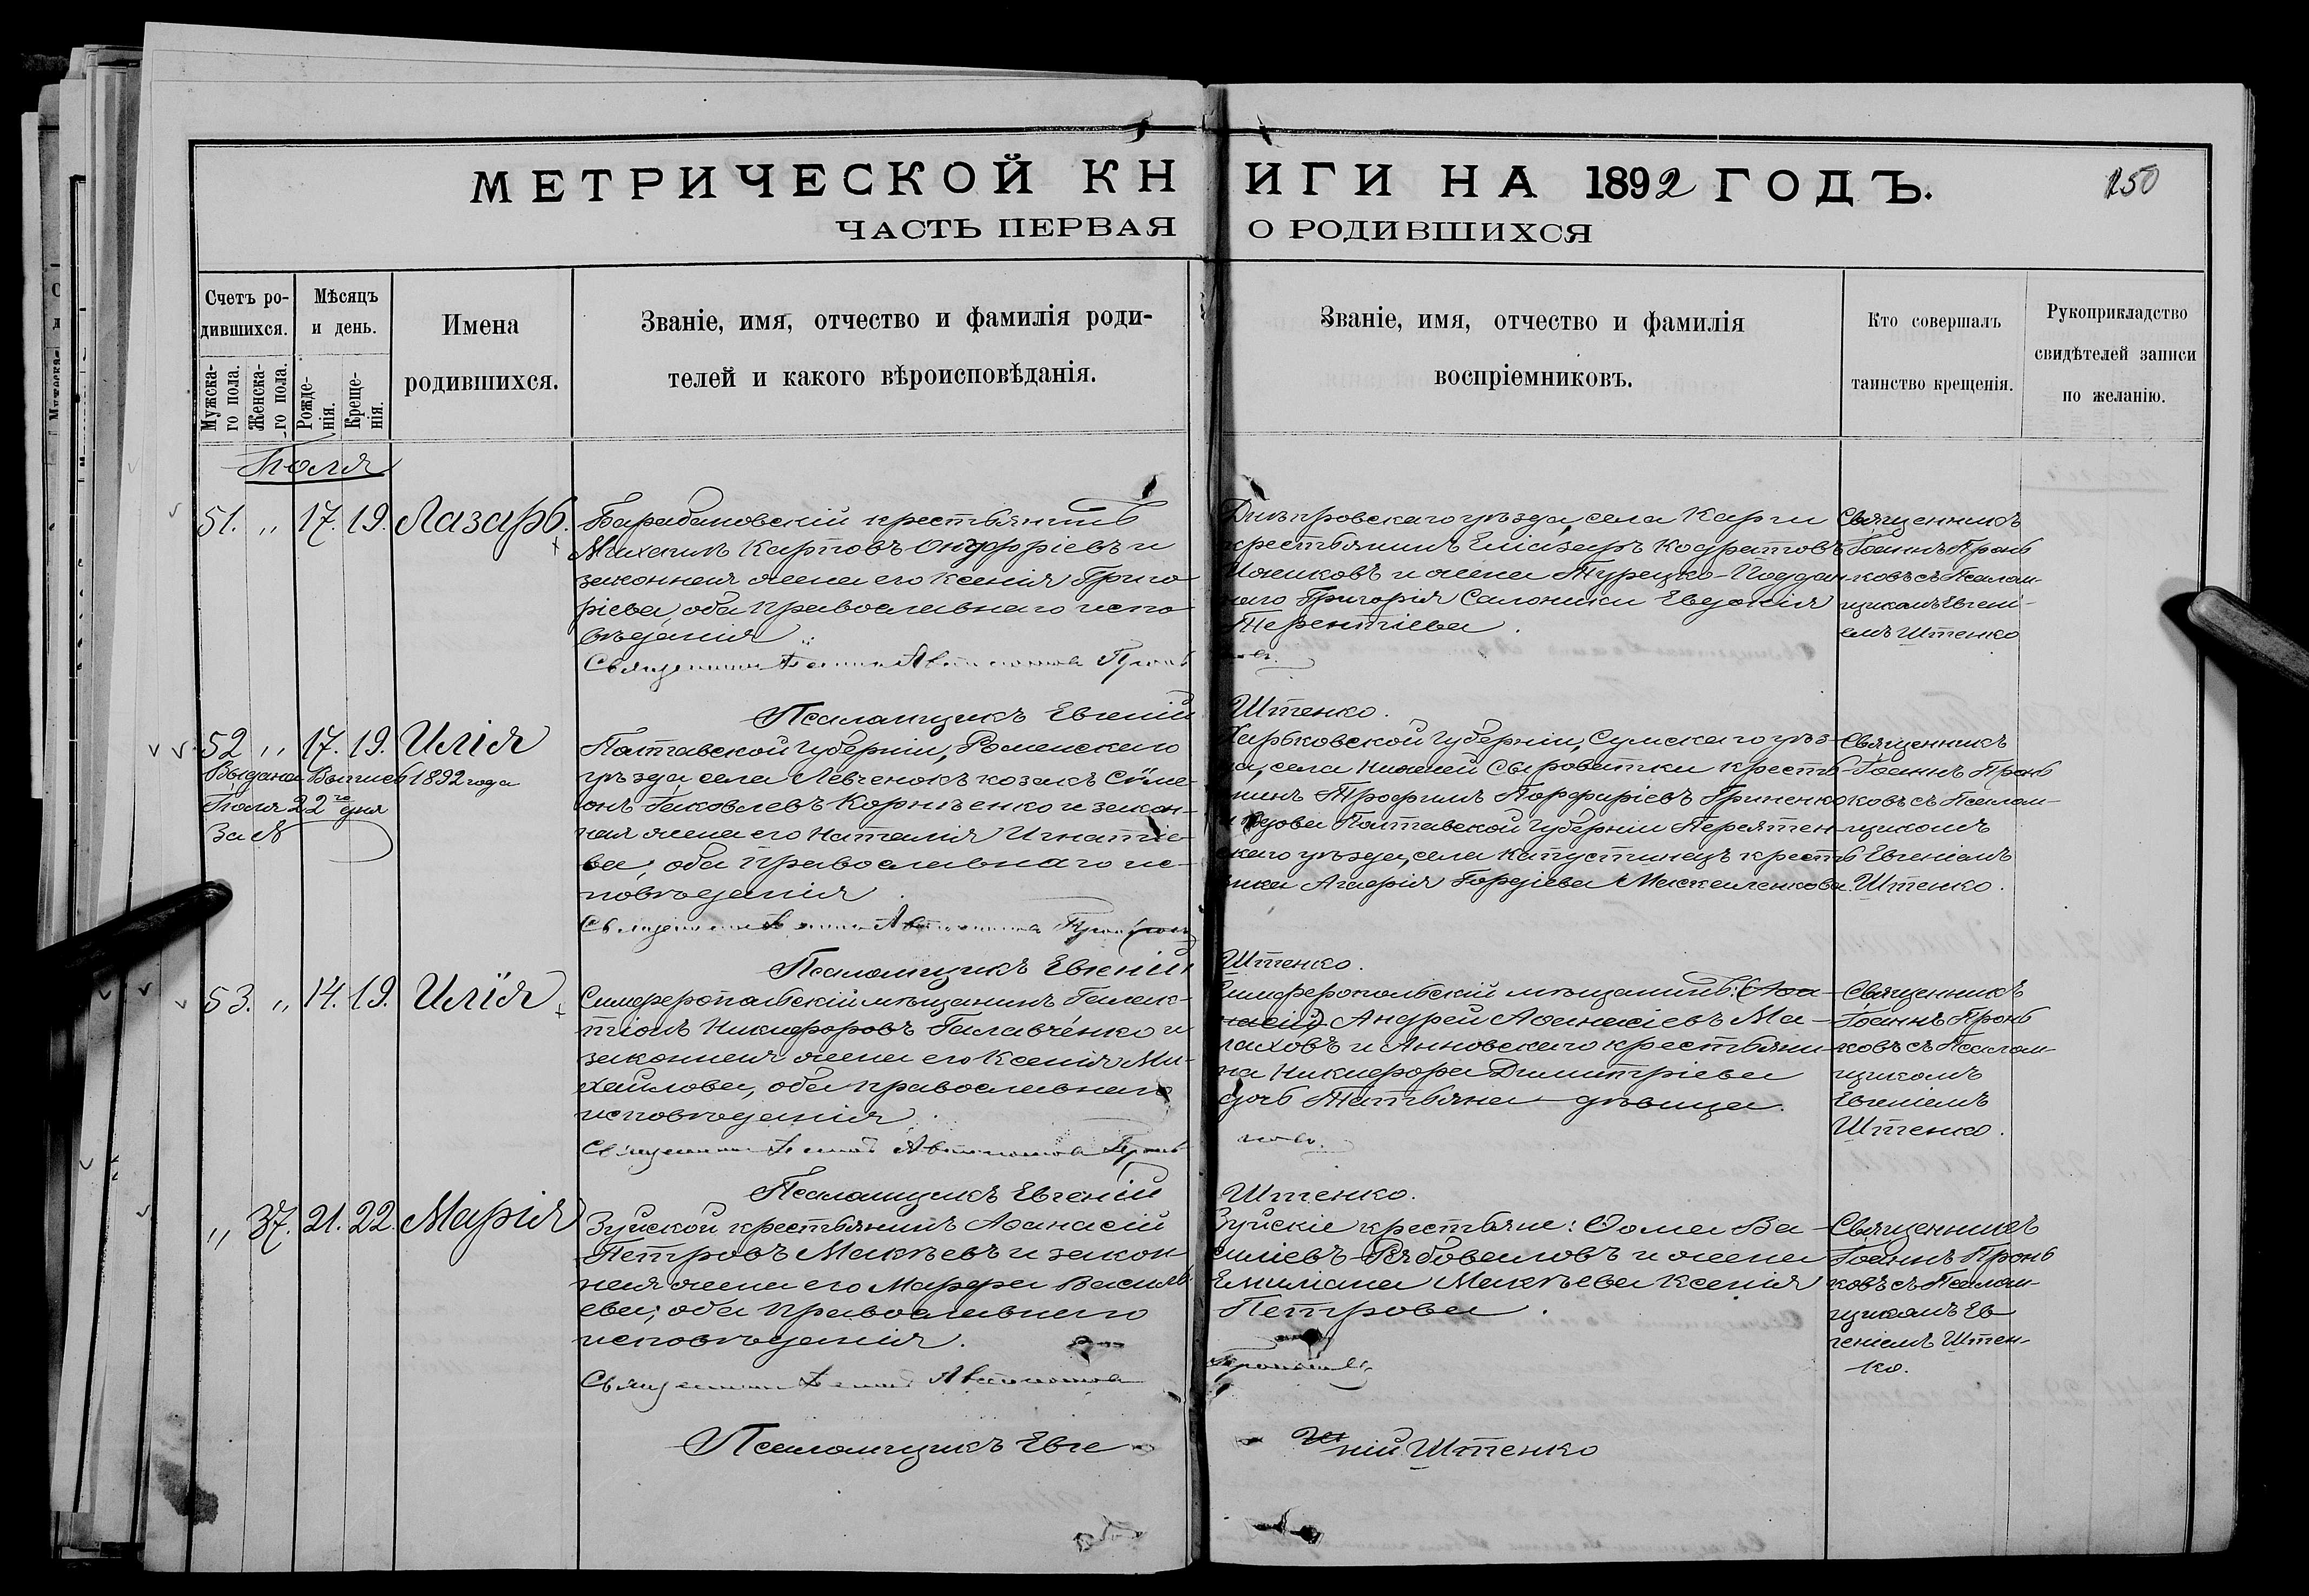 МЕТРИЧЕСКОЙ КНИГИ НА 1892 ГОДЪ.
150
ЧАСТЬ ПЕРВАЯ О РОДИВШИХСЯ
Счетъ ро-
дившихся.
Мужска-
го пола.
Женска-
го пола.
Мѣсяцъ
и день.
Рожде-
нія.
Креще-
нія.
Имена
родившихся.
Званіе, имя, отчество и фамилія роди-
телей и какого вѣроисповѣданія.
Званіе, имя, отчество и фамилія
воспріемниковъ.
Кто совершалъ
таинство крещенія.
Рукоприкладство
свидѣтелей записи
по желанію.
Іюля
51. „ 17. 19. Лазарь.
Барабановскій крестьянинъ
Михаилъ Карповъ Онуфріевъ и
законная жена его Ксенія Григо
ріева, оба православнаго испо
вѣданія
Священникъ Іоаннъ Автономовъ
Псаломщикъ Евгеній
Днѣпровскаго уѣзда, села Карги
крестьянинъ Еліазаръ Кодратовъ
и жена Турецко-Поддан
наго Григорія Салоники Евдокія
Терентіева.
Штенко.
Священникъ
Іоаннъ Пронь
ковъ съ Псалом-
щикомъ Евгені-
емъ Штенко
52 „ 17. 19. Илія
Выдана Выпись 1892 года
Іюля 22го дня
за №
Полтавской Губерніи, Роменскаго
уѣзда, села Левченокъ козакъ Симе
онъ Іаковлевъ Корніенко и закон-
ная жена его Наталія Игнатіе-
ва, оба православнаго ис-
повѣданія.
Священникъ Іоаннъ Автономовъ
Псаломщикъ Евгеній
Харьковской Губерніи, Сумскаго уѣз-
да, села Нижней Сыроватки кресть
нинъ Трофимъ Порфиріевъ Гриненко
и вдова Полтавской Губерніи Пирятен-
скаго уѣзда, села Капустинецъ кресть
янка Агафія Гордіева Маскаленкова.
Штенко.
Священникъ
Іоаннъ Пронь
ковъ съ Псалом-
щикомъ
Евгеніемъ
Штенко.
53. „ 14. 19. Илія
Симферопольскій мѣщанинъ Галак-
тіонъ Никифоровъ Галавченко и
законная жена его Ксенія Ми-
хайлова, оба православнаго
исповѣданія.
Священникъ Іоаннъ Автономовъ Пронь
ковъ.
Псаломщикъ Евгеній
Симферопольскій мѣщанинъ: (Афа-
насій) Андрей Афанасіевъ Ма-
лаховъ и Анновскаго крестьяни-
на Никифора Димитріева
дочь Татьяна дѣвица.
Штенко.
Священникъ
Іоаннъ Пронь
ковъ съ Псалом-
щикомъ
Евгеніемъ
Штенко.
„ 37. 21. 22. Марія
Зуйской крестьянинъ Аѳанасій
Петровъ Макѣевъ и закон
ная жена его Марфа Василь
ева, оба православнаго
исповѣданія.
Священникъ Іоаннъ Автономовъ
Псаломщикъ Евге
ній Штенко
Зуйскіе крестьяне: Ѳома Ва-
силіевъ Рябоваловъ и жена
Емиліана Макѣева Ксенія
Петрова.
Священникъ
Іоаннъ Пронь
ковъ съ Псалом-
щикомъ Ев
геніемъ Штен-
ко.